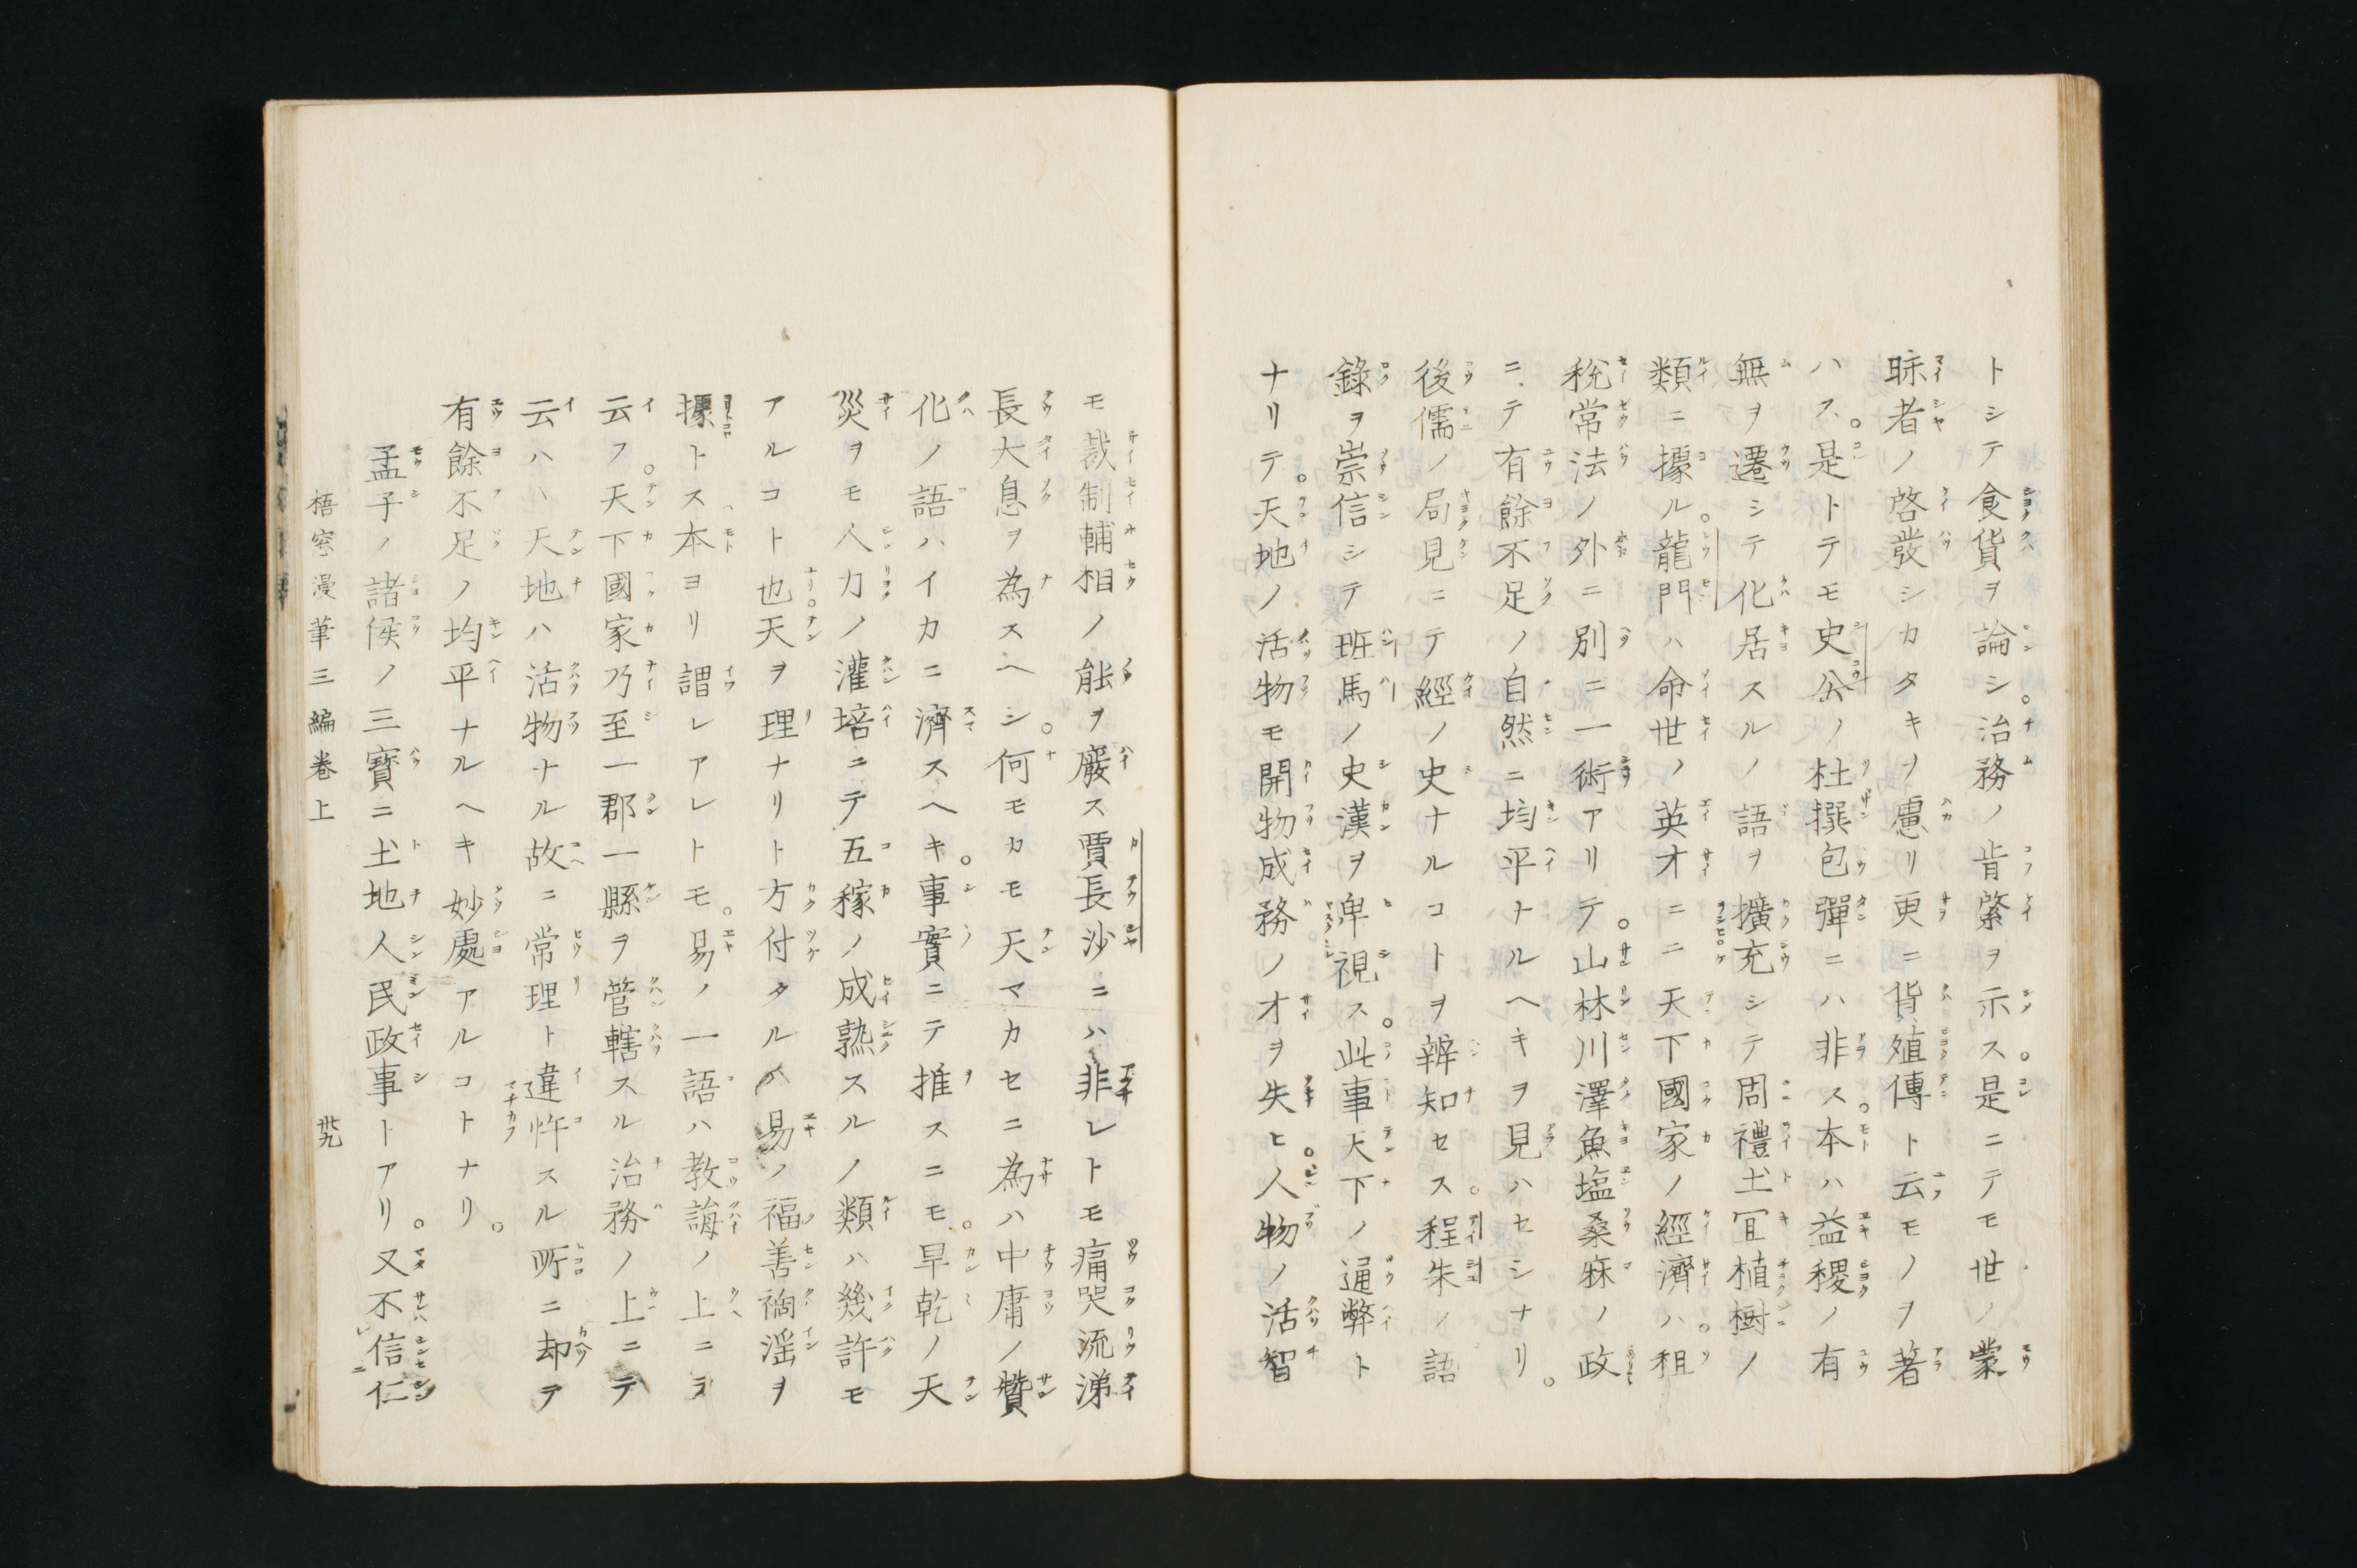 トシテ食貨ヲ論シ治務ノ肯綮ヲ示ス。是ニテモ世ノ蒙
昧者ノ啓發シカタキヲ慮リ更ニ貨殖傳ト云モノヲ著
ハス。是トテモ史公ノ杜撰包彈ニハ非ス。本ハ益稷ノ有
無ヲ遷シテ化居スルノ語ヲ擴充シテ周禮土宜植樹ノ
類ニ據ル。龍門ハ命世ノ英才ニ天下國家ノ經濟ハ。租
税常法ノ外ニ別ニ一術アリテ。山林川澤魚塩桑麻ノ政
ニテ有餘不足ノ自然ニ均平ナルヘキヲ見ハセシナリ。
後儒ノ局見ニテ經ノ史ナルコトヲ辨知セス。程朱ノ語
錄ヲ崇信シテ班馬ノ史漢ヲ卑視ス。此事天下ノ通弊ト
ナリテ。天地ノ活物モ開物成務ノ才ヲ失ヒ。人物ノ活智
モ裁制輔相ノ能ヲ廢ス賈長沙ニハ非レトモ痛哭流涕
長大息ヲ為スヘシ。何モカモ天マカセニ為ハ中庸ノ贊
化ノ語ハイカニ濟スヘキ。事實ニテ推スニモ。旱乾ノ天
災ヲモ人力ノ灌培ニテ五稼ノ成熟スルノ類ハ幾許モ
アルコト也。天ヲ理ナリト方付タルハ易ノ福善禍淫ヲ
據トス本ヨリ謂レアレトモ。易ノ一語ハ教誨ノ上ニテ
云フ。天下國家乃至一郡一縣ヲ管轄スル治務ノ上ニテ
云ハヽ天地ハ活物ナル故ニ常理ト違忤スル所ニ却テ
有餘不足ノ均平ナルヘキ妙處アルコトナリ。
孟子ノ諸侯ノ三寶ニ土地人民政事トアリ。又不信仁
梧窓漫筆三編卷上 廿九